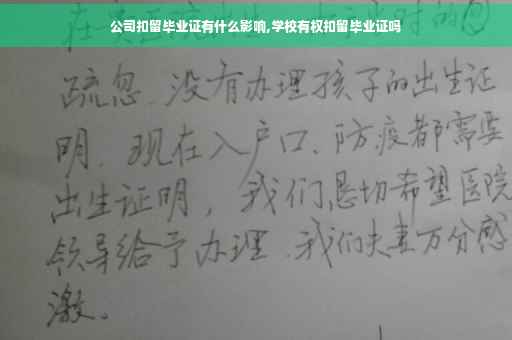 公司扣留毕业证有什么影响,学校有权扣留毕业证吗
疏忽.没有办理孩子的出生证
明.现在入户口、防疫都需要
出生证明，我们恳切希望医院
领导给予办理.我们夫妻万分感
激。